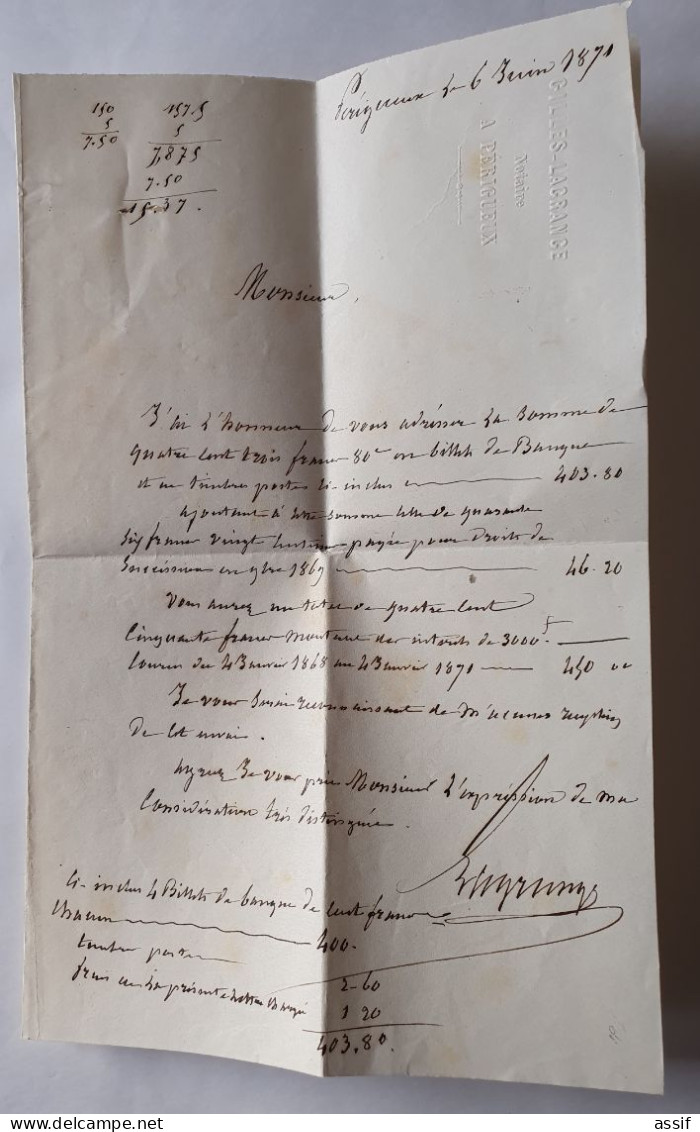 Périgueux Le 6 Juin 1871
GILLES-LAGRANGE
Notaire
A PÉRIGUEUX
150
5
7.50
157.5
5
7,875
7.50
15.37.
Monsieur,
J'ai L'honneur de vous adresser La Somme de
quatre cent trois francs 80c en billets de Banque
et en timbres postes ci-inclus 403.80
ajoutant à cette somme celle de quarante
six francs vingt centimes payée pour Droits de
Succession en 9bre 1869 46.20
Vous aurez un total de quatre cent
Cinquante francs montant des intérêts de 3000f
courus du 4 Janvier 1868 au 4 Janvier 1871 450 00
Je vous serai reconnaissant de m'accuser reception
De cet envoi.
agréez Je vous prie Monsieur L'expression de ma
Considération très distinguée.
Lagrange
Ci-inclus 4 Billets de banque de cent francs
Chacun 400.
timbres postes 2-60
frais de La présente Lettre chargée 1 20
403,80.
delcampe.net
assif